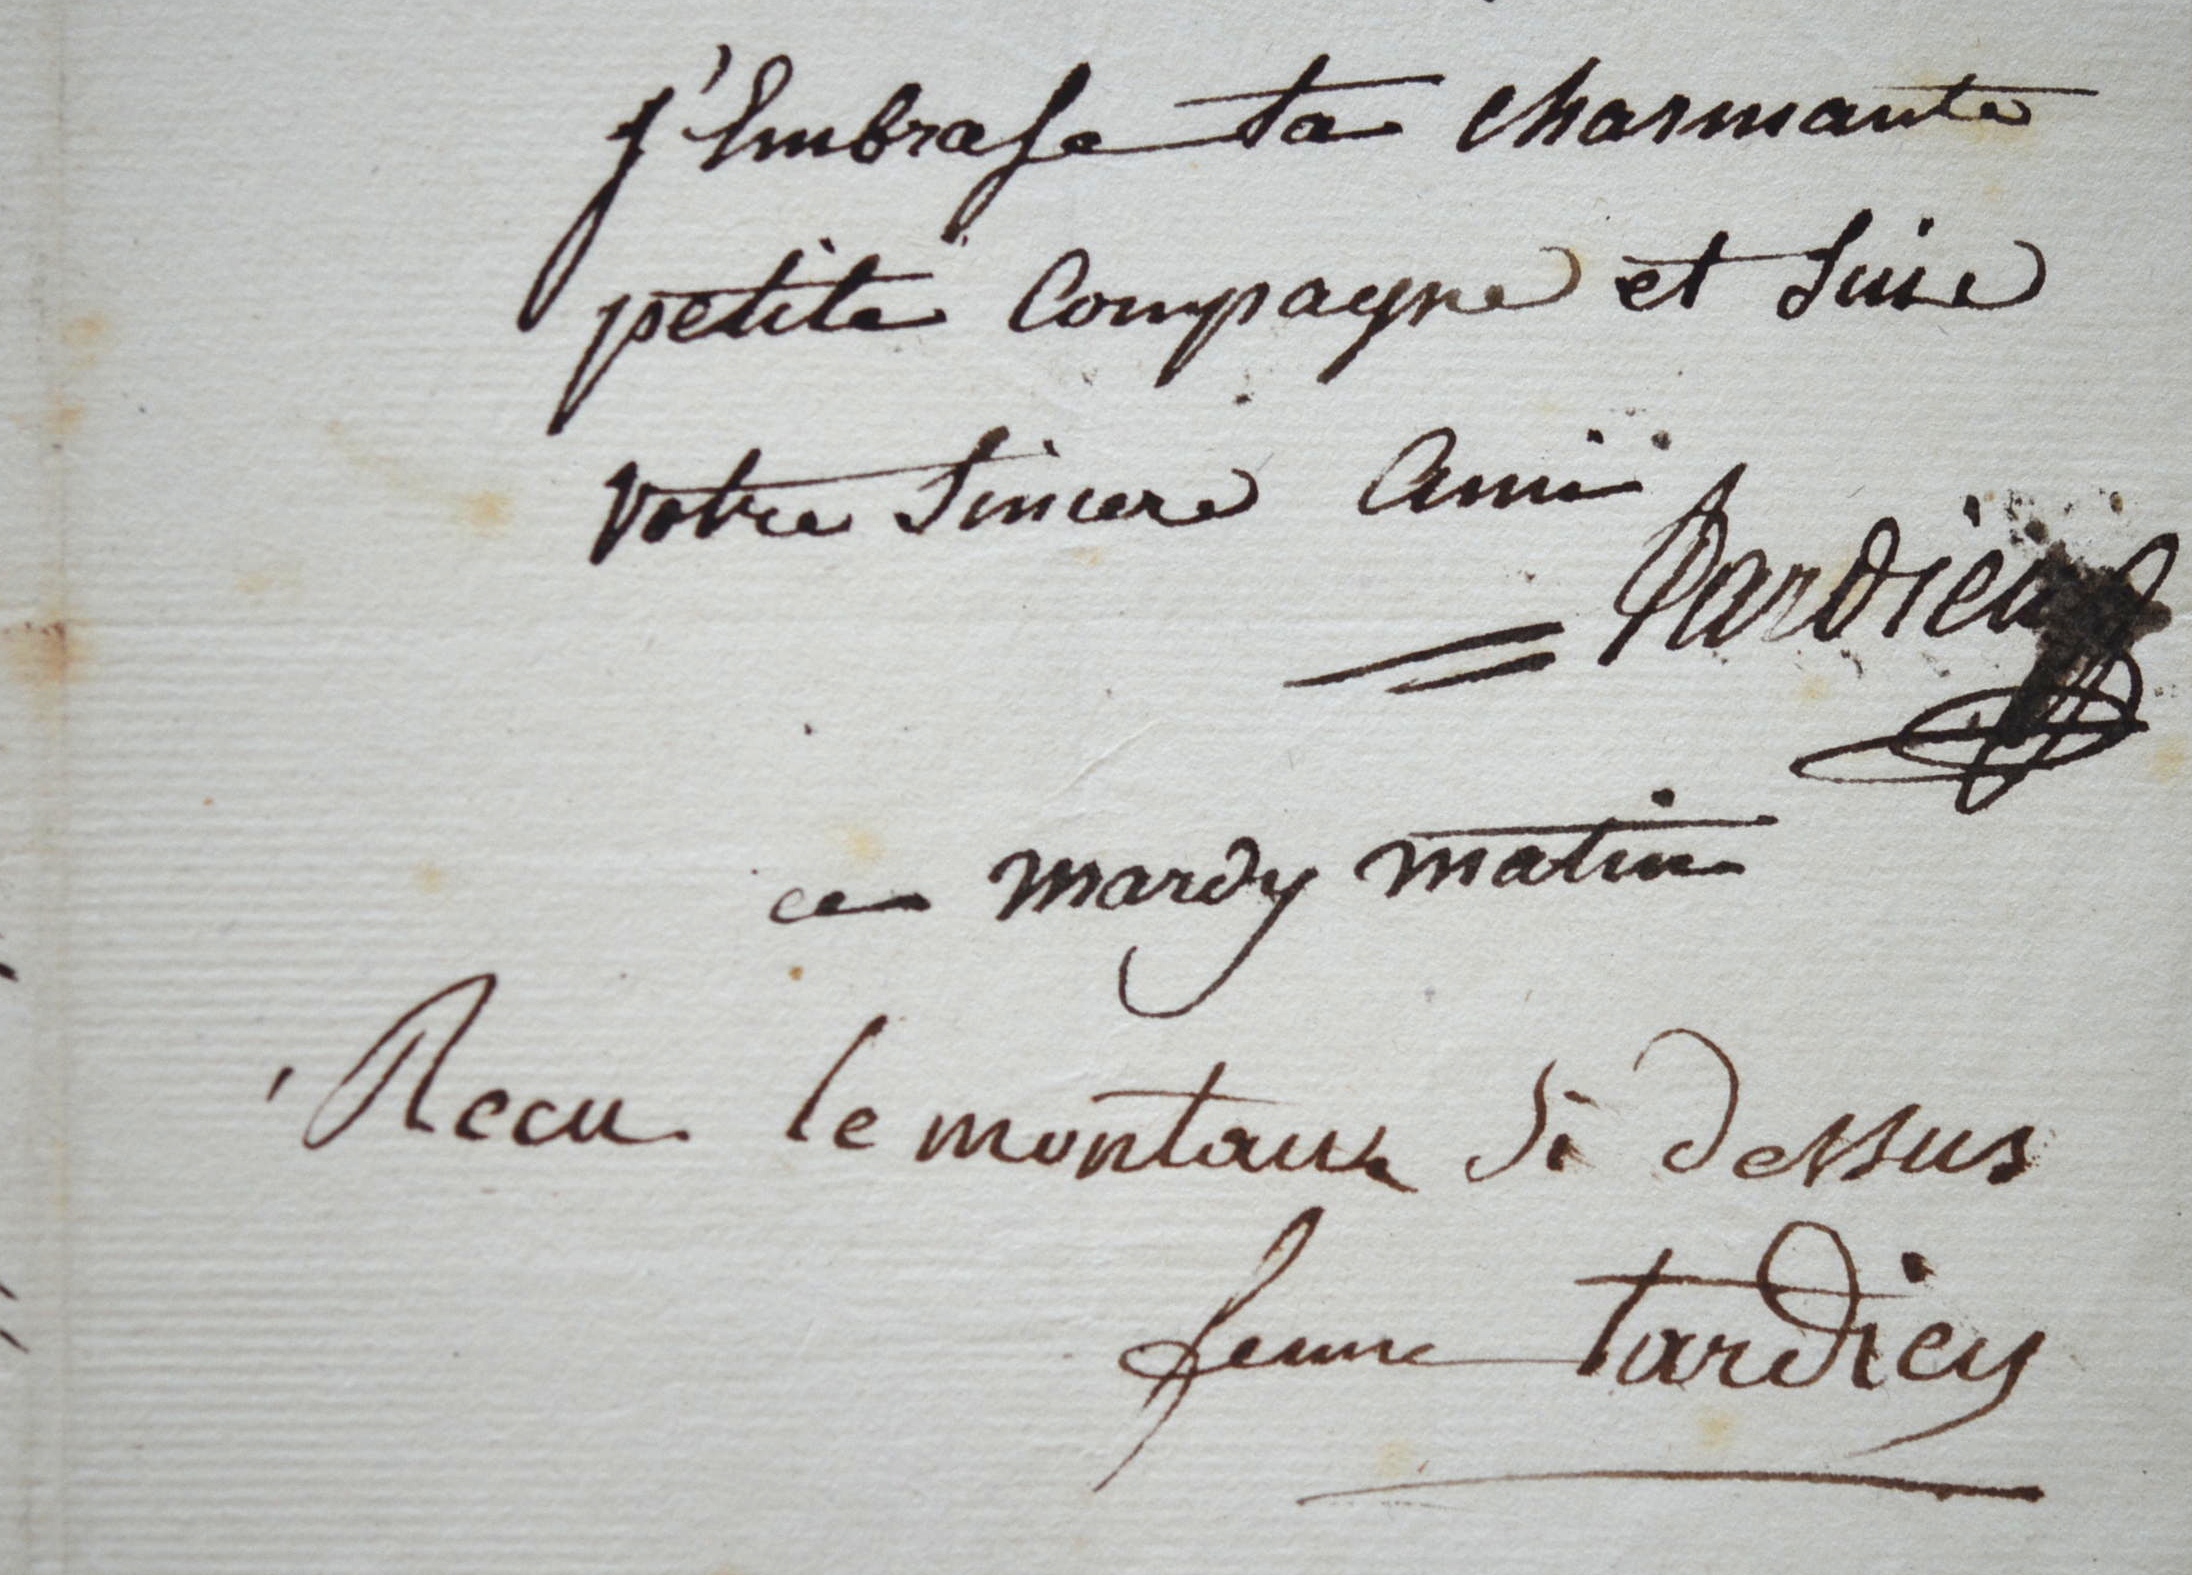 j'Embrasse ta charmante
petite Compagne et suis
votre sincere ami
Tardieu
ce mardy matin
Recu le montant si dessus
femme tardieu